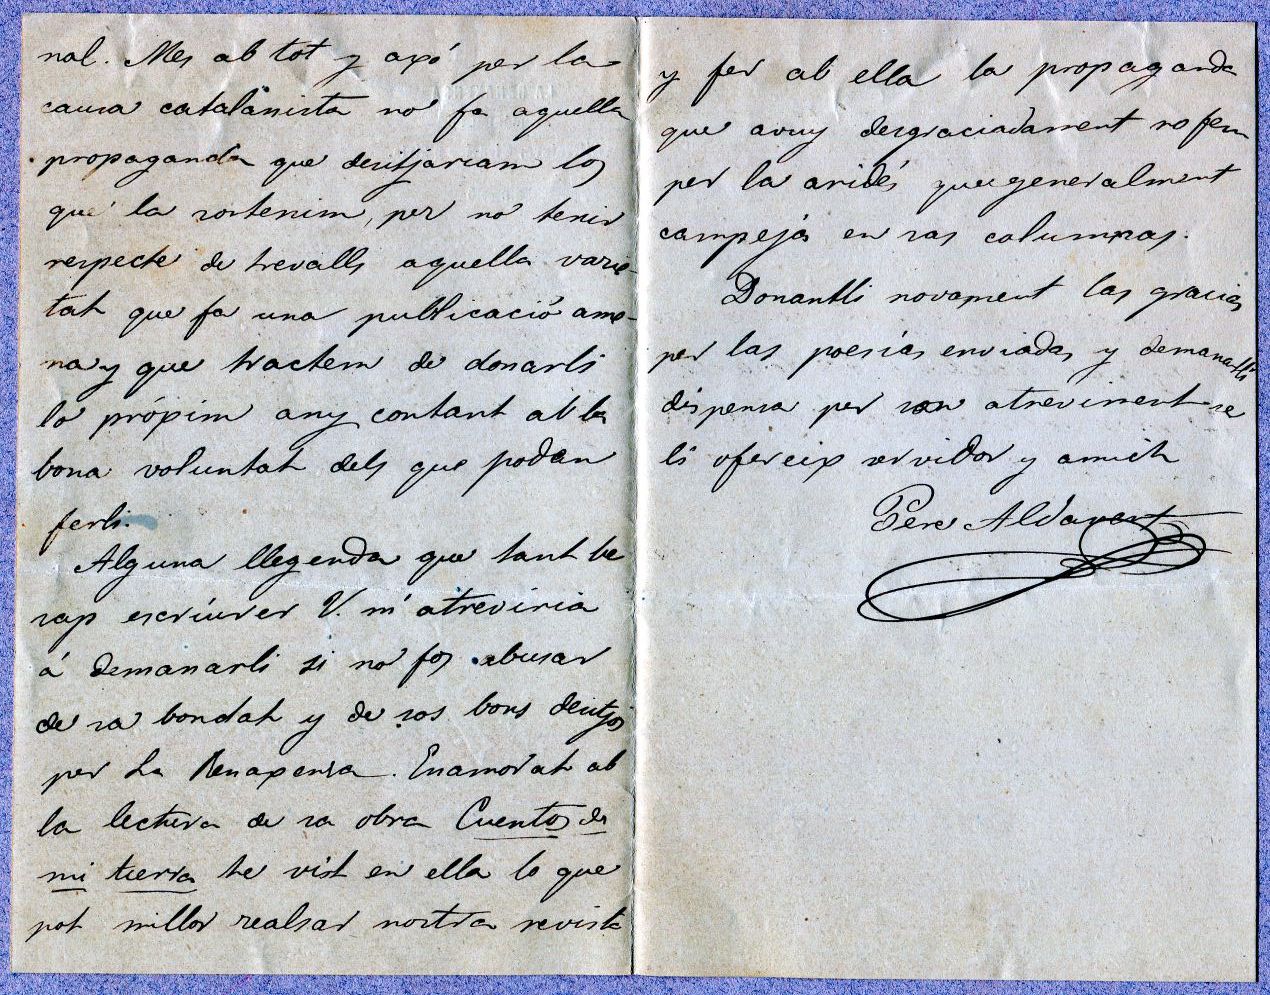 nal. Mes ab tot y axó per la
causa catalanista no fa aquella
propaganda que desitjariam los
que la sostenim, per no tenir
respecte de trevalls aquella varie-
tat que fa una publicació ame-
na y que tractem de donarli
lo próxim any contant ab la
bona voluntat dels que podan
ferli.
Alguna llegenda que tant be
sap escriurer V. m'atreviria
á demanarli si no fos abusar
de sa bondat y de sos bons desitjos
per La Renaxensa. Enamorat ab
la lectura de sa obra Cuentos de
mi tierra he vist en ella lo que
pot millor realsar nostra revista
y fer ab ella la propaganda
que avuy desgraciadament no fem
per la aridés que generalment
campeja en sas columnas.
Donantli novament las gracias
per las poesías enviadas y demanantli
dispensa per son atreviment se
li ofereix servidor y amich
Pere Aldavert